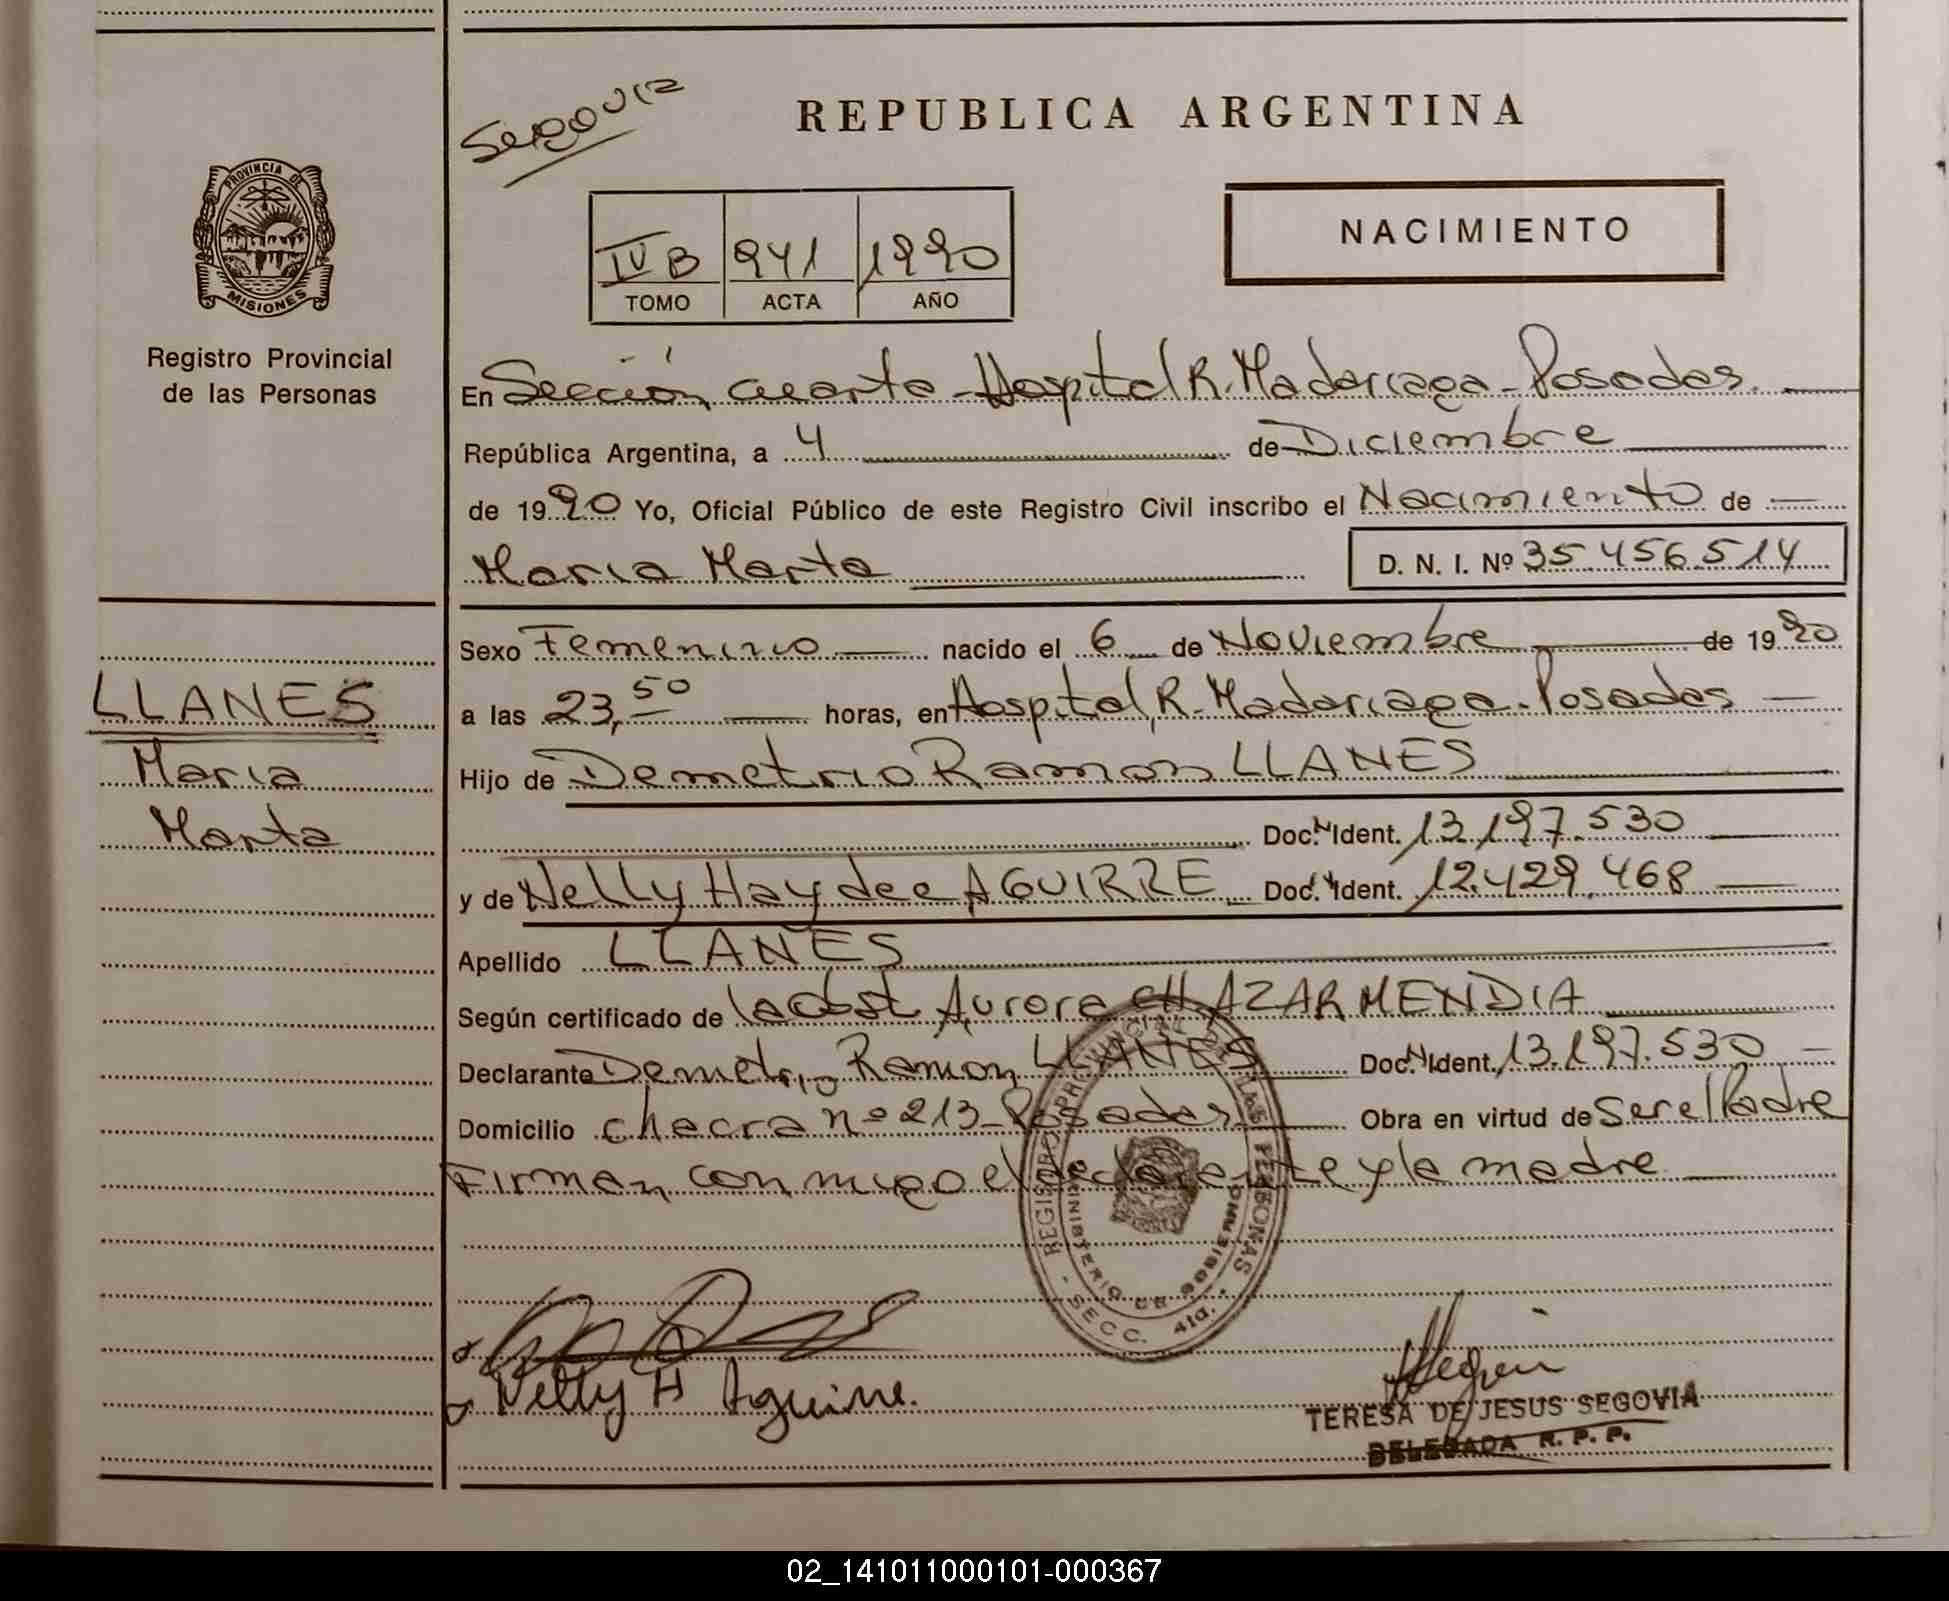 Segovia
REPUBLICA ARGENTINA
PROVINCIA DE
MISIONES
Registro Provincial
de las Personas
NACIMIENTO
IV B 941 1990
TOMO ACTA AÑO
En Sección cuarta - Hospital R. Madariaga - Posadas.
República Argentina, a 4 de Diciembre
de 1990 Yo, Oficial Público de este Registro Civil inscribo el Nacimiento de
Maria Marta D. N. I. Nº 35.456.514
Sexo Femenino nacido el 6 de Noviembre de 1990
a las 23,50 horas, en Hospital R. Madariaga - Posadas
Hijo de Demetrio Ramon LLANES
Doc. N Ident. 13.197.530
y de Nelly Haydee AGUIRRE Doc. N Ident. 12.429.468
Apellido LLANES
Según certificado de la obst Aurora CH AZARMENDIA
Declarante Demetrio Ramon LLANES Doc. N Ident. 13.197.530
Domicilio chacra nº 213 - Posadas Obra en virtud de Ser el Padre
Firman con migo el declarante y la madre
LLANES
Maria
Marta
REGISTRO PROVINCIAL DE LAS PERSONAS
MINISTERIO DE GOBIERNO
- SECC. 4ta. -
Nelly H Aguirre.
TERESA DE JESUS SEGOVIA
DELEGADA R. P. P.
02_141011000101-000367